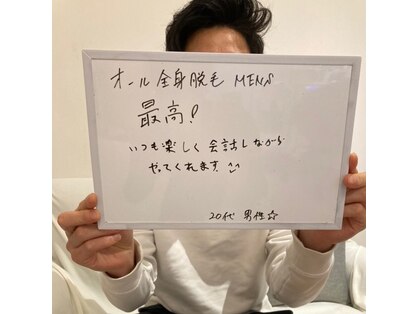 オール全身脱毛 MENS
最高!
いつも楽しく会話しながら
やってくれます
20代 男性☆